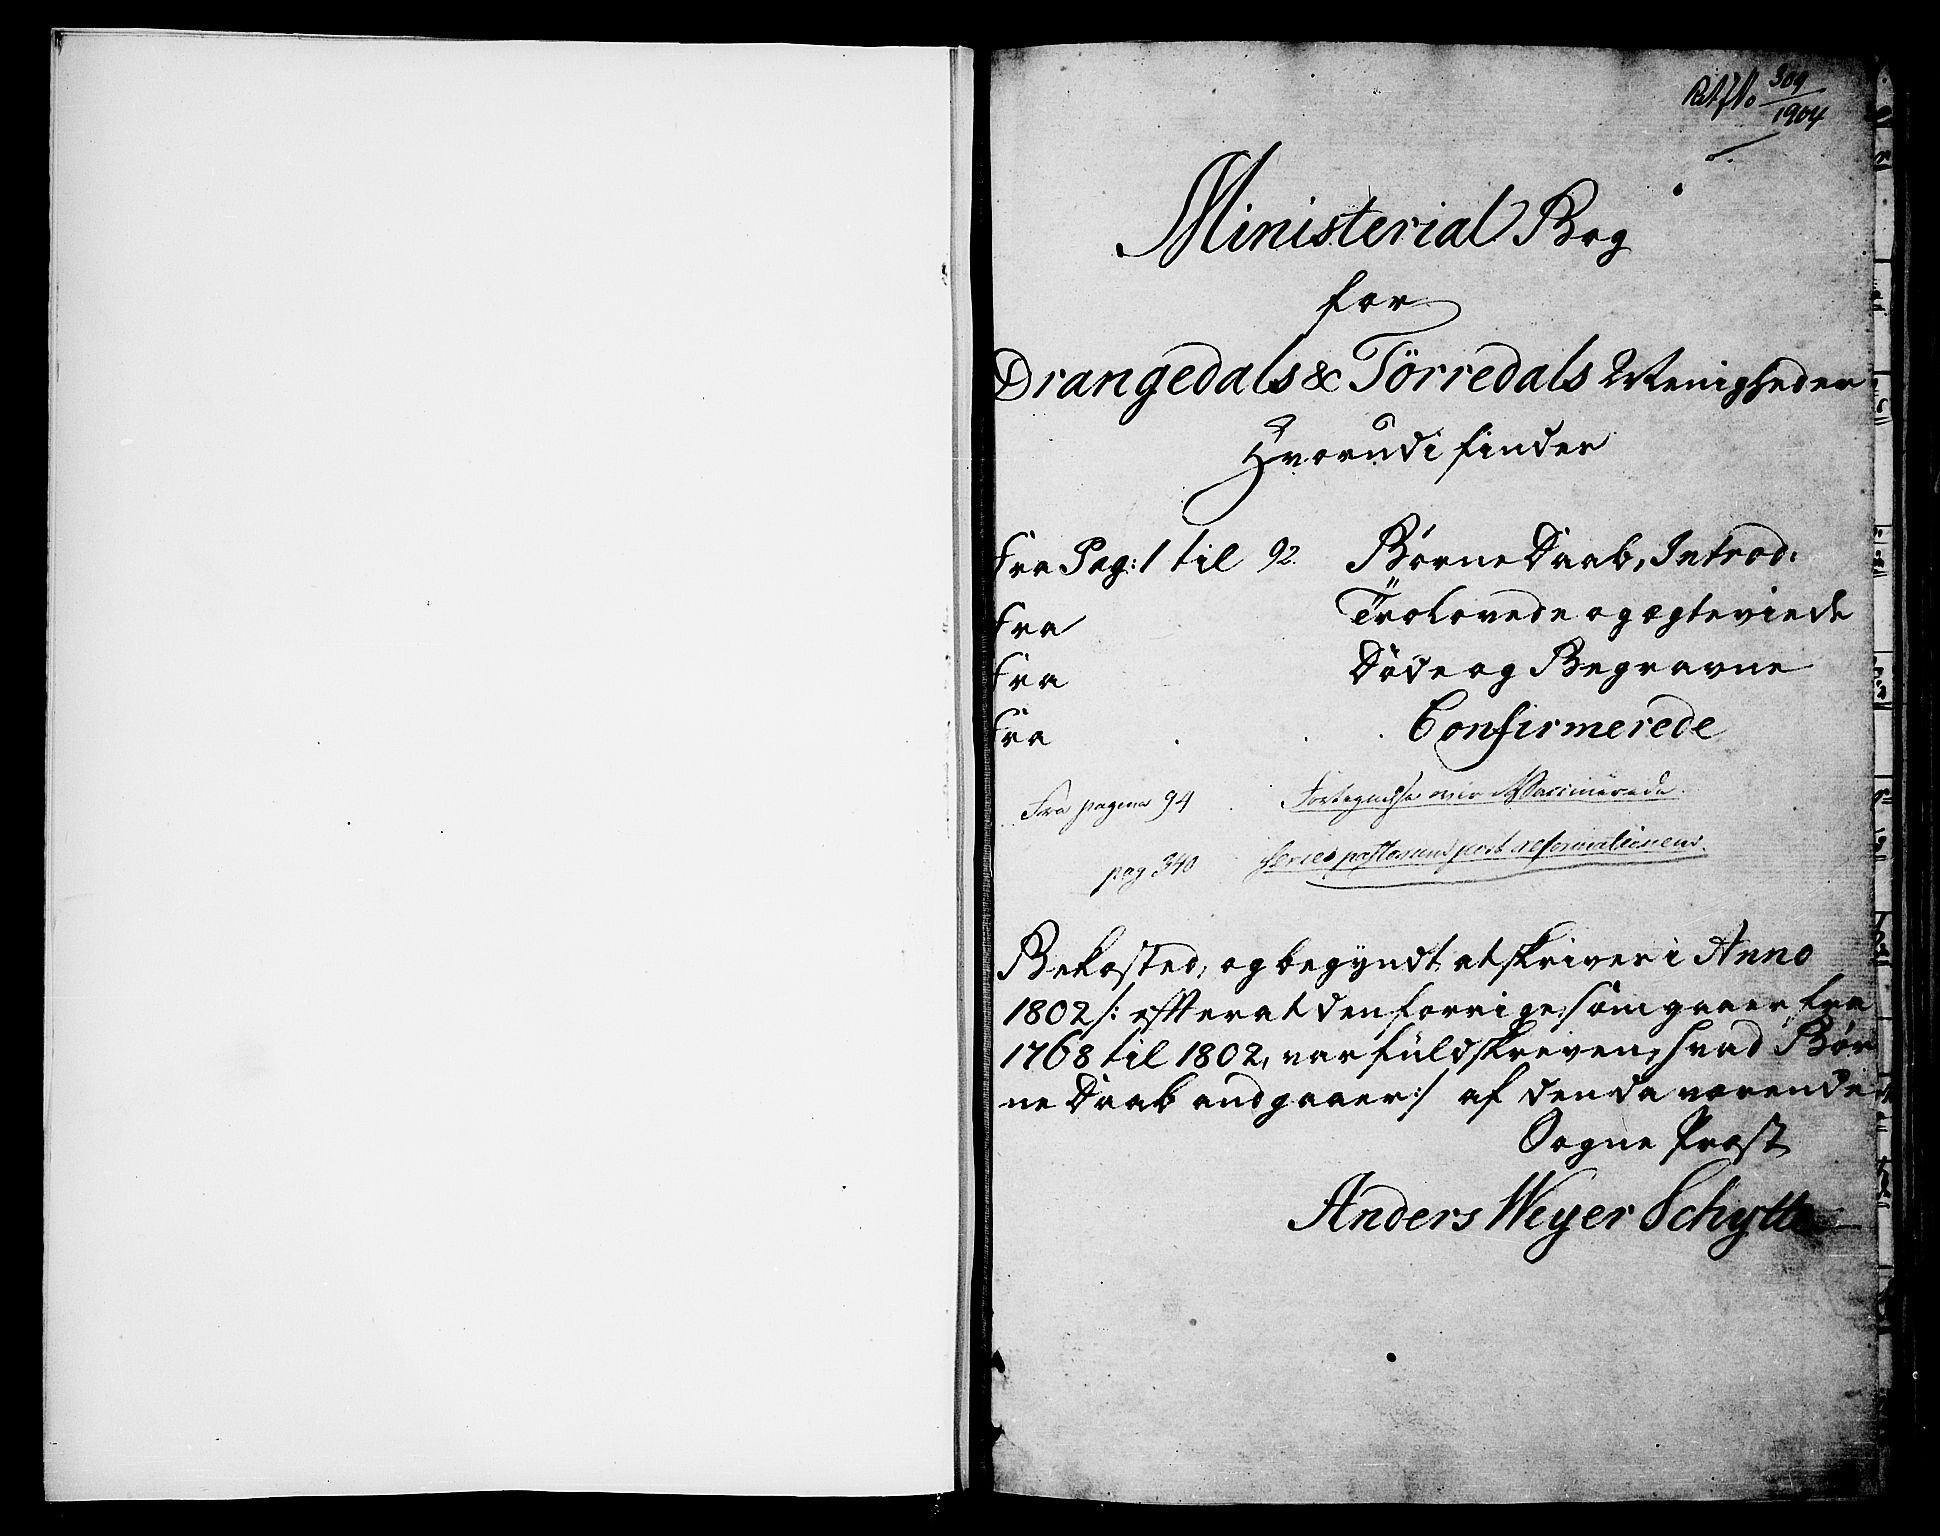 309
1904
Ministerial Bog
for
Drangedals & Törredals Menigheder
Hvorudi findes
Fra Pag: 1 til 92. Börne Daab, Introd:
Fra Trolovede og ægteviede
Fra Döde og Begravne
Fra Confirmerede
Fra pagena 94 Fortegnelse over Vaccinerede.
pag 340 Series pastorum post reformationem.
Bekosted, og begyndt at skrives i Anno
1802 /: efter at den forrige, som gaaer fra
1768 til 1802, var fuldskreven, hvad Bör
ne Daab andgaaer :/ af den da værende
Sogne Præst
Anders Weyer Schytte